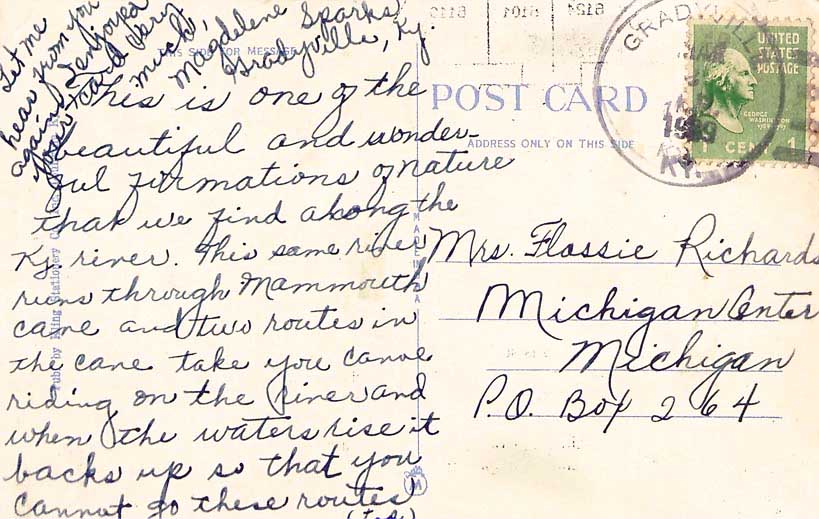 This is one of the
beautiful and wonder-
ful formations of nature
that we find along the
Ky river. This same river
runs through Mammouth
cave and two routes in
the cave take you canoe
riding on the river and
when the waters rise it
backs up so that you
cannot go these routes
Let me
hear from you
again. I enjoyed
your card very
much,
Magdelene Sparks
Gradyville, Ky.
THIS SIDE FOR MESSAGE
POST CARD
ADDRESS ONLY ON THIS SIDE
Mrs. Flossie Richards
Michigan Center
Michigan
P.O. Box 264
GRADYVILLE
KY.
UNITED
STATES
POSTAGE
GEORGE
WASHINGTON
1 CENT 1